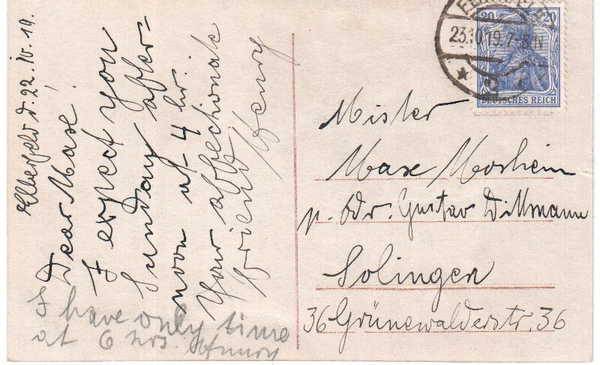 Elberfeld d. 22. IV. 19.
Dear Maxe!
I expect you
Sunday after-
noon at 4 hr.
Your affectionate
friend Henry
I have only time
at 6 hrs. Henry
23.10.19.7-8N
20 20
DEUTSCHES REICH
Mister
Maxe Morsheim
p. Adr. Gustav Dillmann
Solingen
36 Grünewalderstr. 36